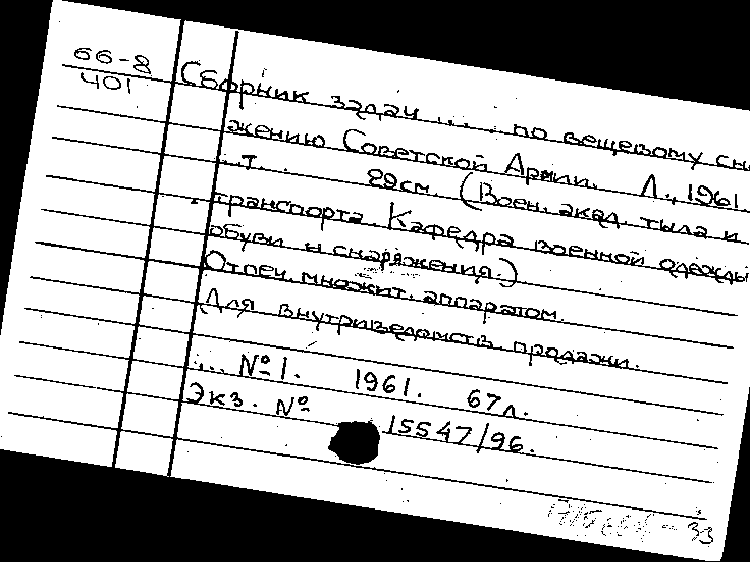 66-8
401
Сборник задач ... ... по вещевому сна
жению Советской Армии. Л., 1961.
...т... 29см. (Воен. акад. тыла и
транспорта. Кафедра военной одежды
обуви и снаряжения.)
Отпеч. множит. аппаратом.
Для внутриведомств. продажи.
... №1. 1961. 67л.
Экз. № 15547/96.